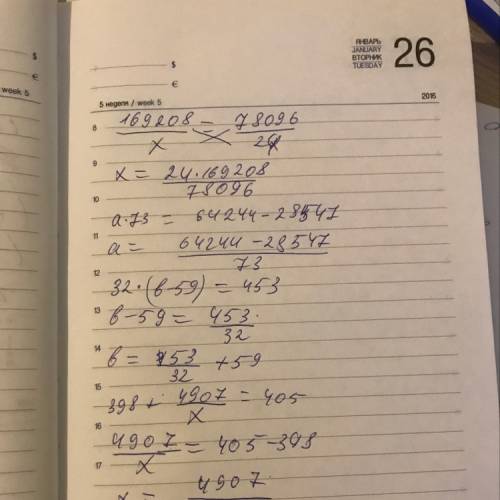 $
€
week 5
$
€
ЯНВАРЬ
JANUARY
ВТОРНИК
TUESDAY
26
5 неделя / week 5
2016
8
169208 = 78096
x 24
9
x = 24·169208
78096
10
a·73 = 64244-28547
11
a= 64244-28547
73
12
32·(b-59) = 453
13
b-59= 453
32
14
b= 453 +59
32
15
398+ 4907 = 405
x
16
4907 = 405-398
x
17
x = 4907